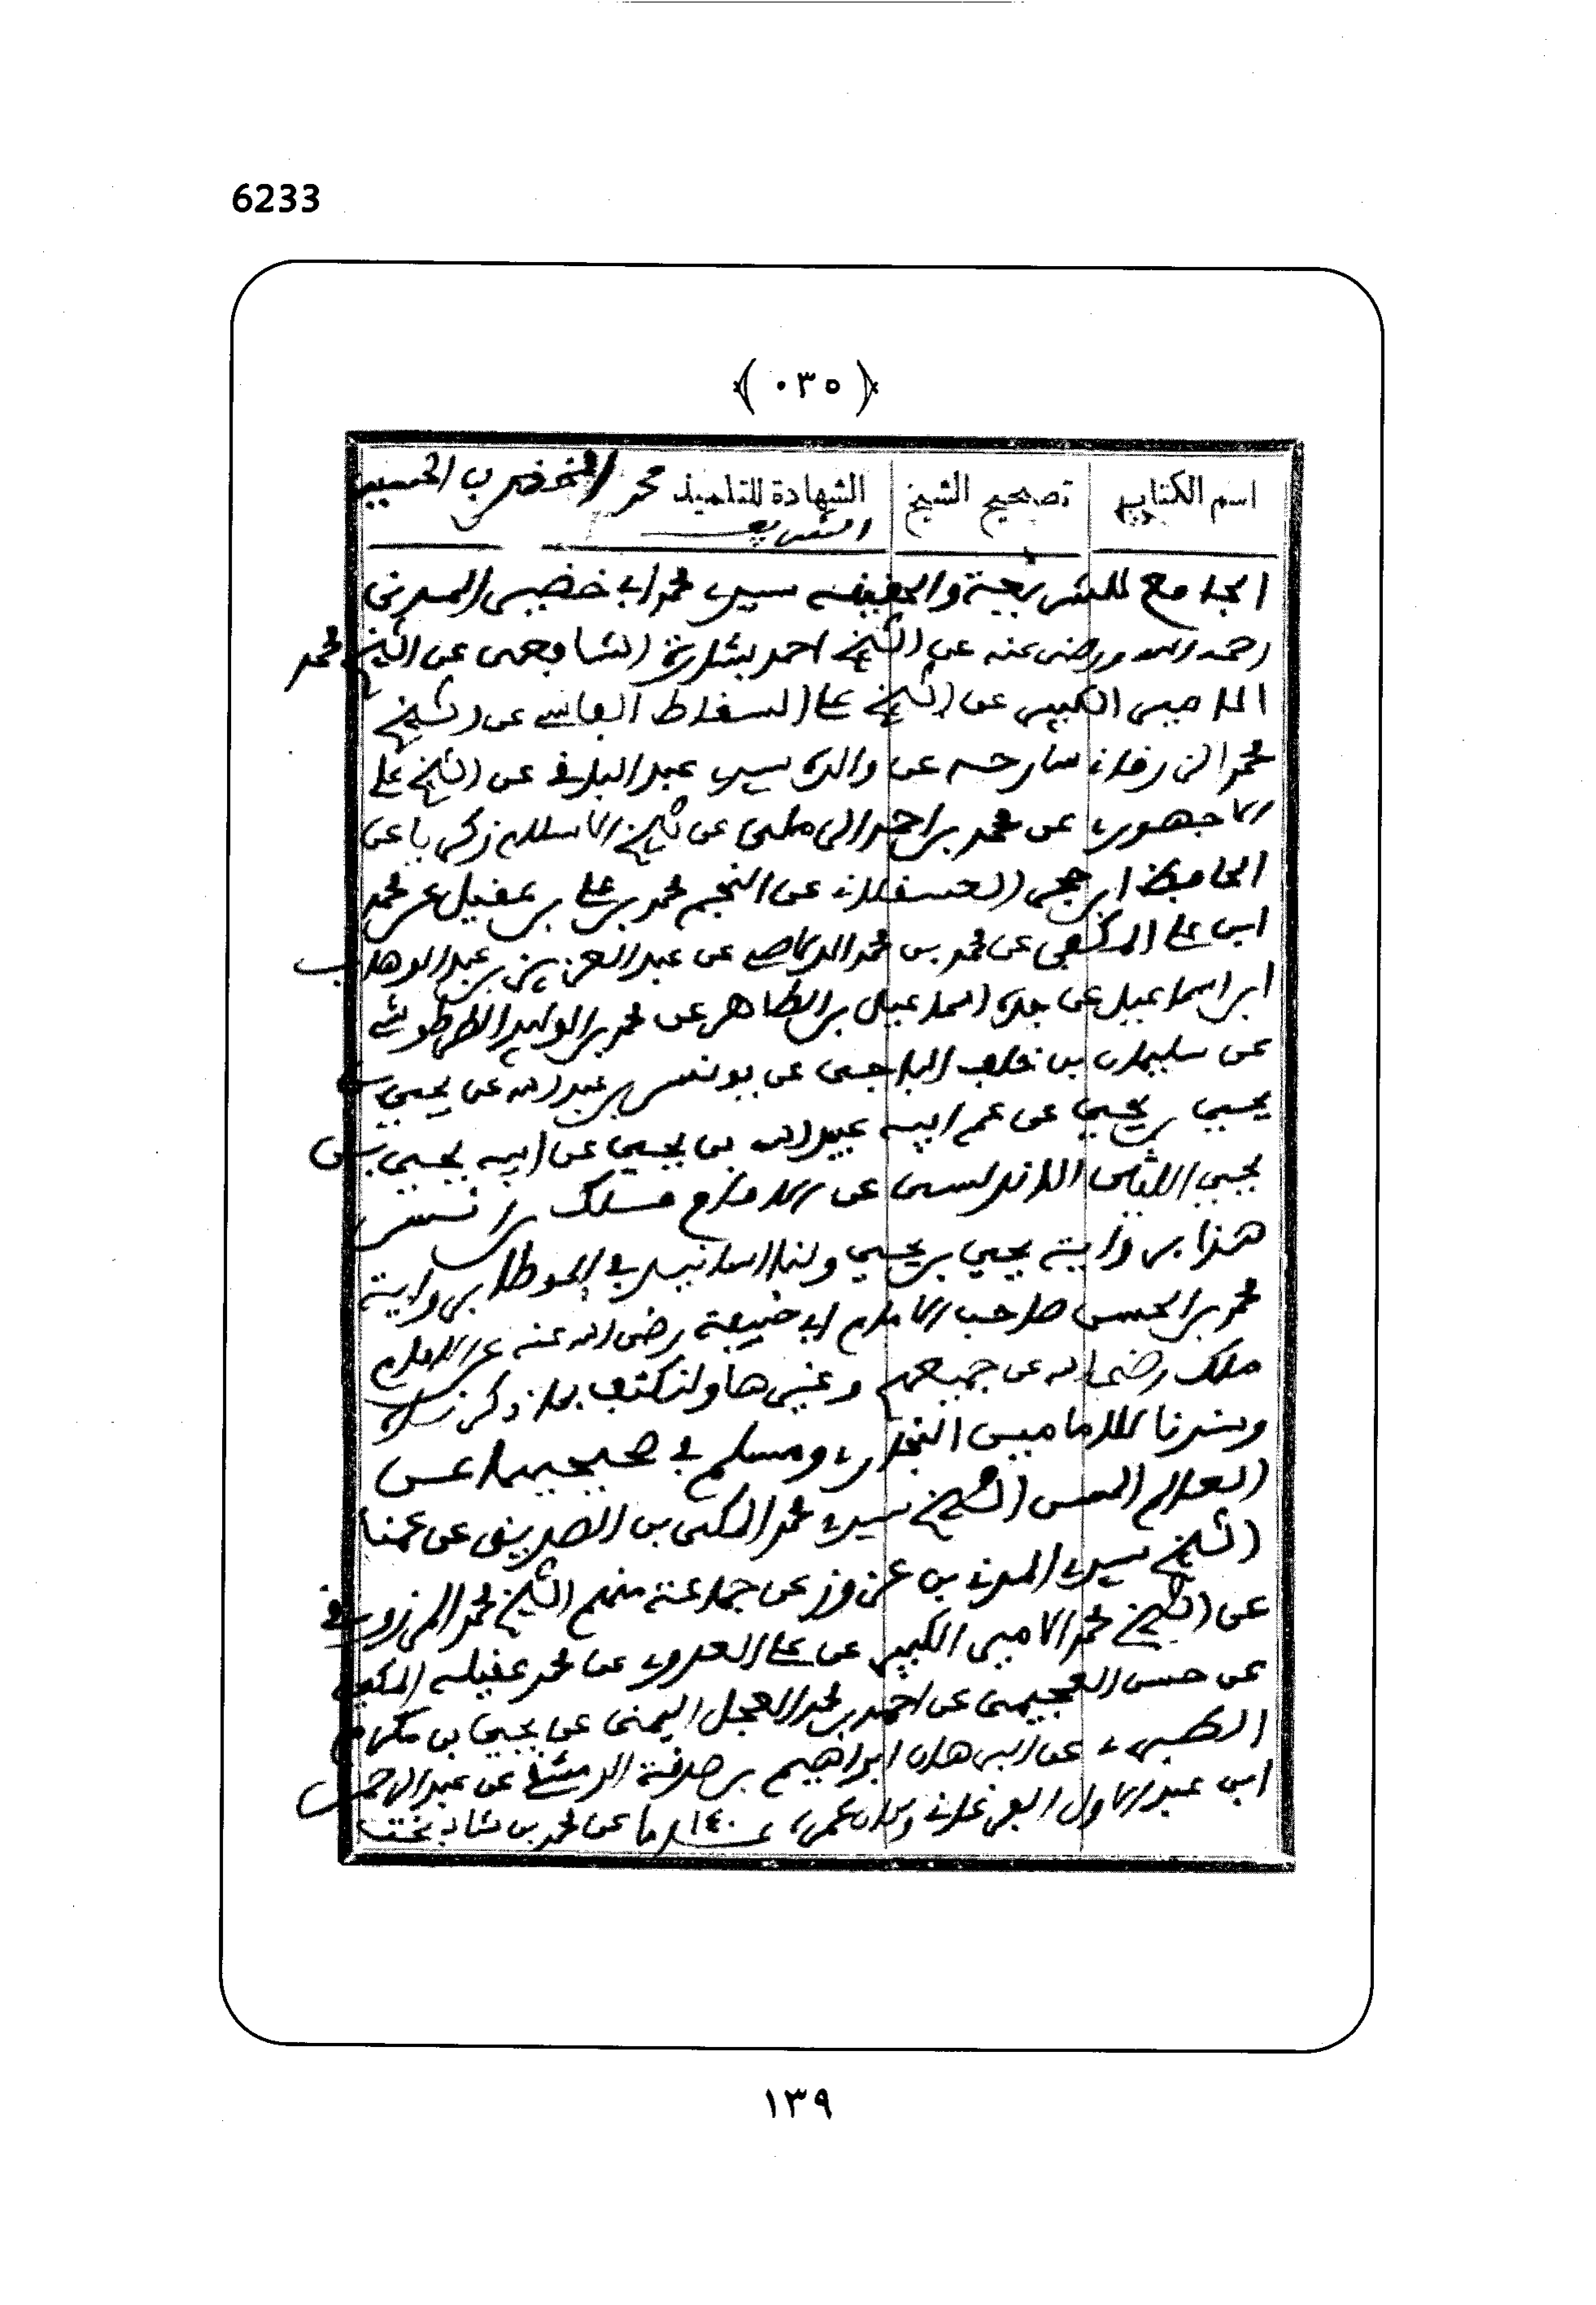 6233
﴿ ٠٣٥ ﴾
اسم الكتاب | تصحيح الشيخ | الشهادة للتلميذ محمد الخضر بن الحسين
الشريف
الجامع للشريعة والحقيقة سيدي محمد ابي خضير المدني
رحمه الله ورضي عنه عن الشيخ احمد بشارة الشافعي عن الشيخ محمد
الامير الكبير عن الشيخ علي السقاط الفاسي عن الشيخ
محمد الزرقاني شارحه عن والده سيدي عبد الباقي عن الشيخ علي
الاجهوري عن محمد بن احمد الرملي عن شيخ الاسلام زكريا عن
الحافظ ابن حجر العسقلاني عن النجم محمد بن علي بن عقيل عن محمد
ابن علي المكفي عن محمد بن محمد الدلاصي عن عبد العزيز بن عبد الوهاب
ابن اسماعيل عن جده اسماعيل بن الطاهر عن محمد بن الوليد الطرطوشي
عن سليمان بن خلف الباجي عن يونس بن عبد الله عن يحيى بن
يحيى بن يحيى عن عم ابيه عبيد الله بن يحيى عن ابيه يحيى بن
يحيى الليثي الاندلسي عن الامام مالك بن انس
هذا برواية يحيى بن يحيى ولنا اسانيد في الموطا برواية
محمد بن الحسن صاحب الامام ابي حنيفة رضي الله عنه عن الامام
مالك رضي الله عن جميعهم وغيرها ولنكتف بما ذكرناه
وسندنا للامامين البخاري ومسلم في صحيحيهما عن
العالم المعمر الشيخ سيدي محمد المكي بن الصديق عن عمنا
الشيخ سيدي المدني بن عزوز عن جماعة منهم الشيخ محمد المرزوقي
عن الشيخ محمد الامير الكبير عن علي العدوي عن محمد عقيله المكي
عن حسن العجيمي عن احمد بن محمد العجل اليمني عن يحيى بن مكرم
الطبري عن البرهان ابراهيم بن صدقة الدمشقي عن عبد الرحمن
ابن عبد الاول الفرغاني وكان عمره ١٤٠ عاما عن محمد بن شاذبخت
١٣٩